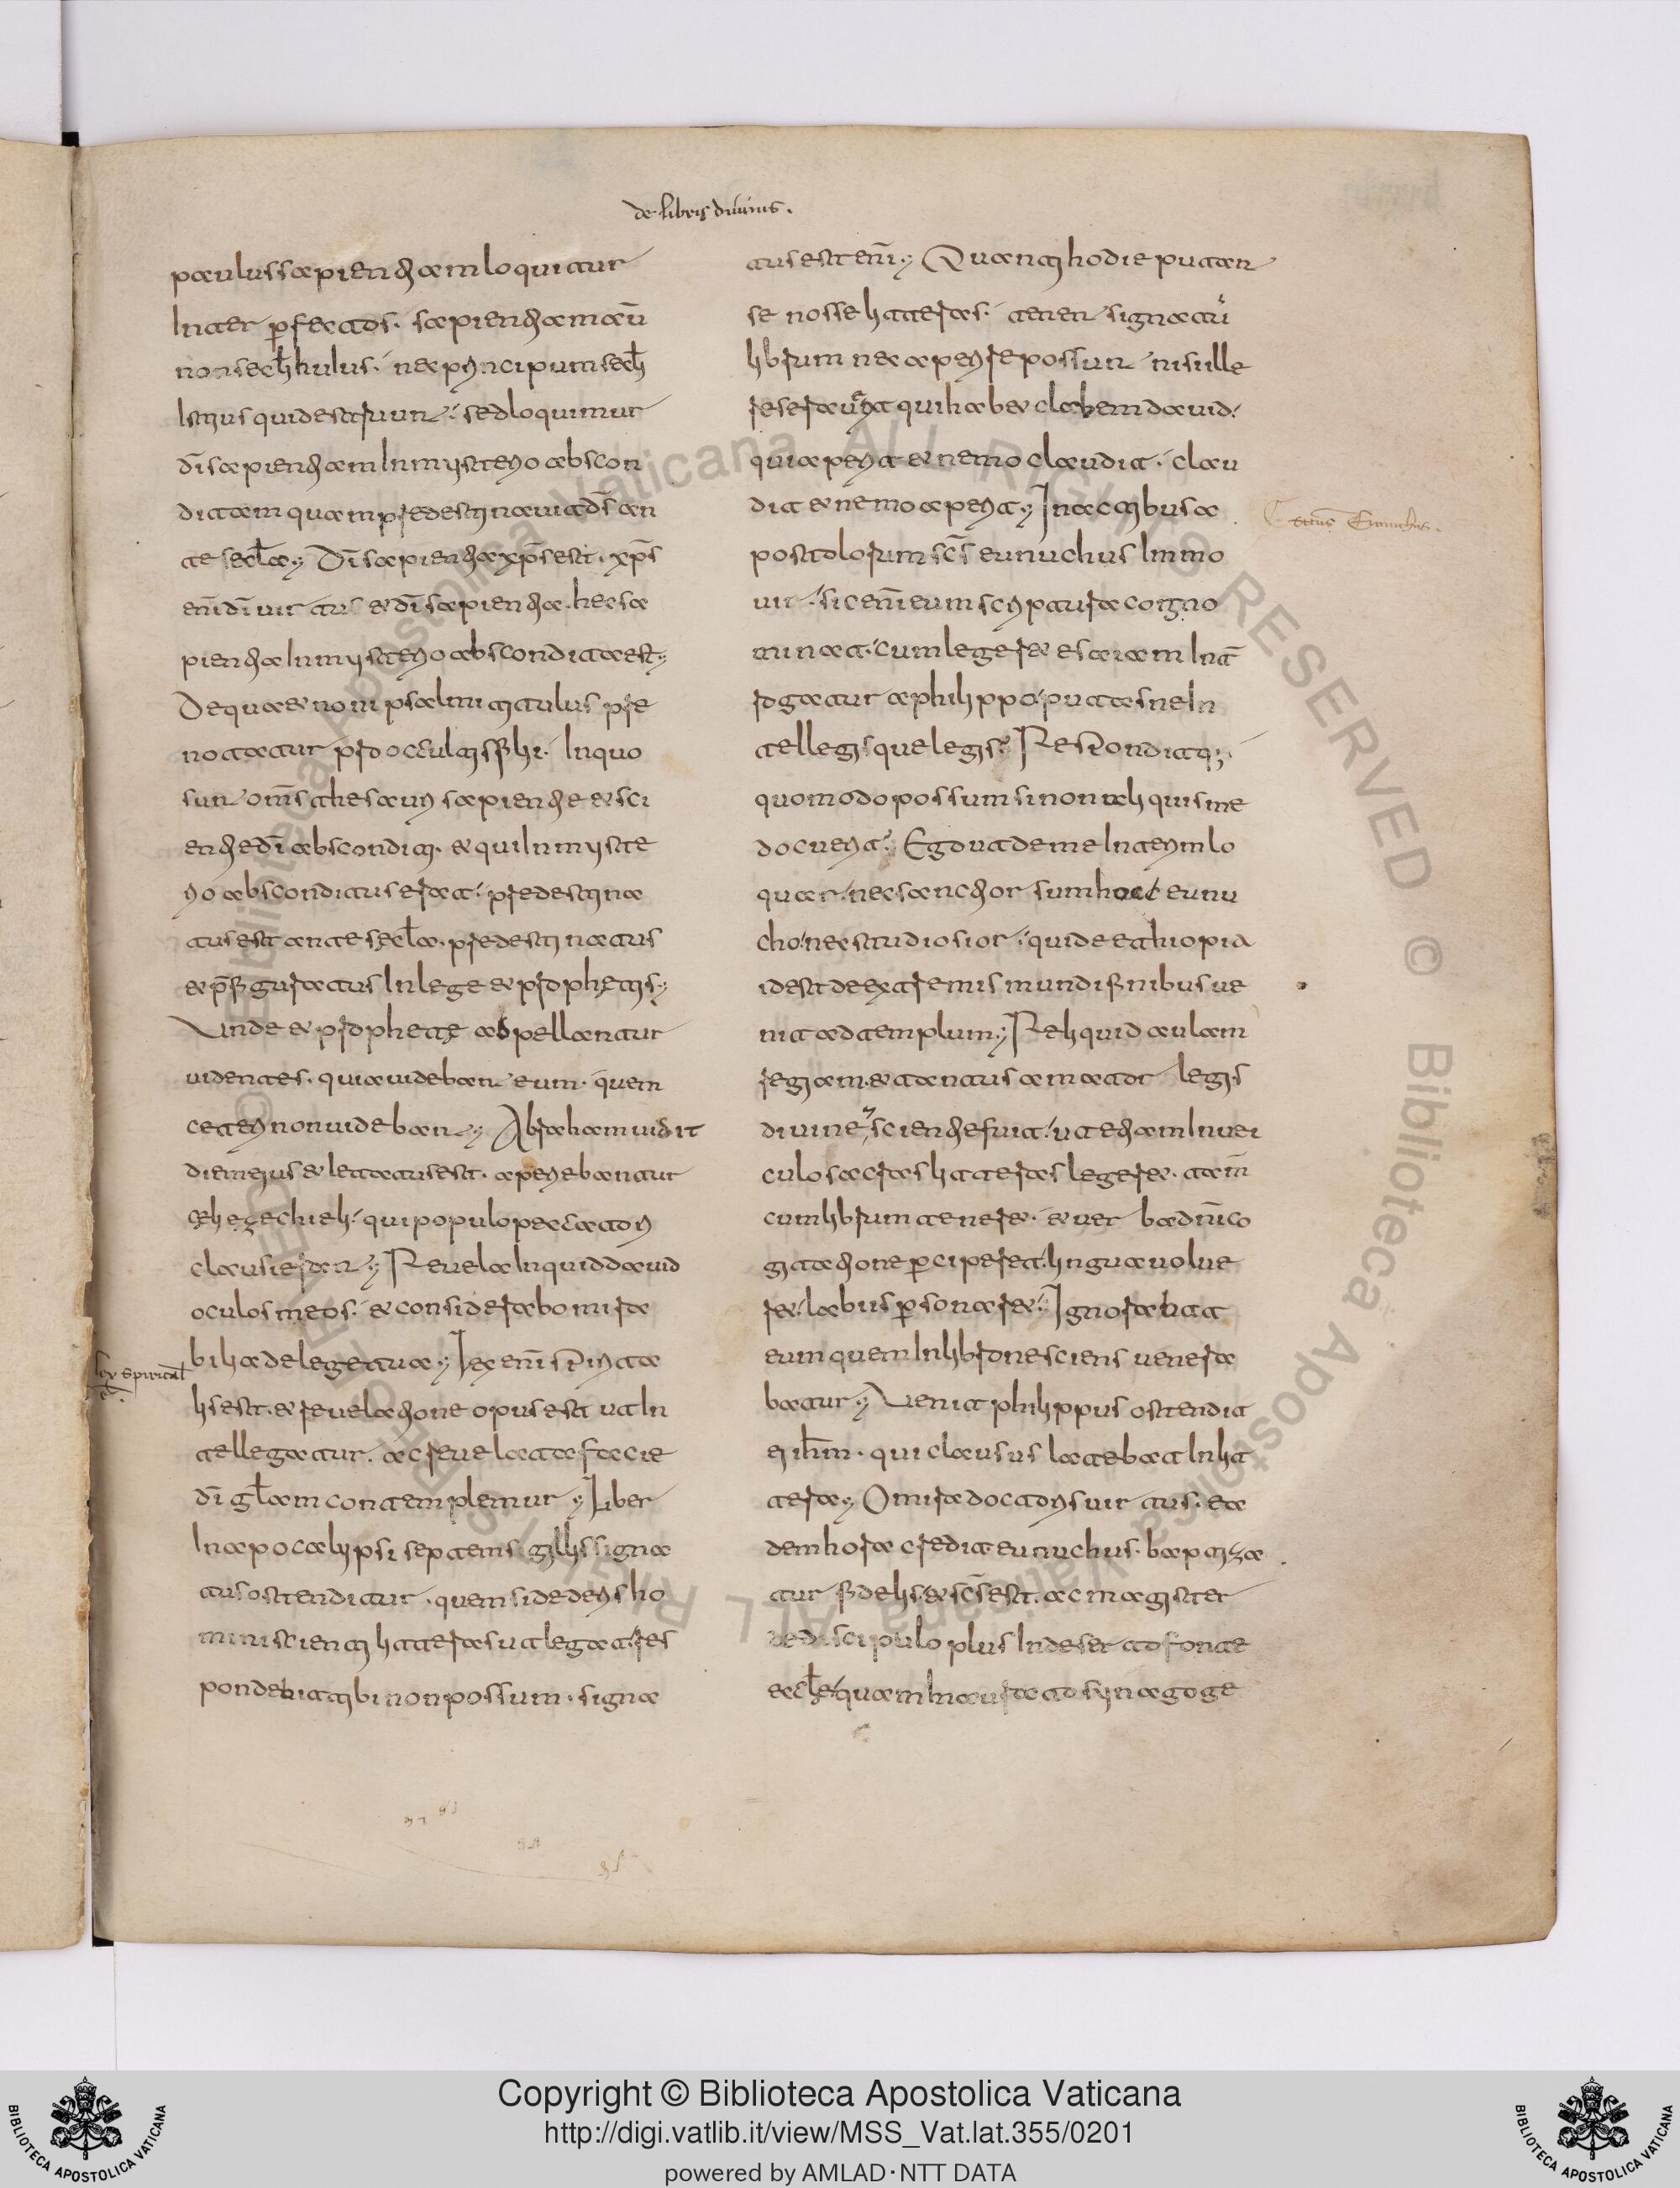 de libris diuinis.
paulus sapientiam loquitur
Inter p̄fectos. sapientiam aū
non sęcli huius. neq principum sęcli
Istius qui destruunt. sed loquimur
dī sapientiam In mysterio abscon
ditam quam predestinauit dſ an
te secła. Dī sapientia xp̄s est. xp̄s
enī dī uirtus et dī sapientia. hec sa
pientia In mysterio abscondita est.
De qua et noni psalmi titulus pre
notatur pro occultis filii. In quo
sunt omſ thesauri sapientie et sci
entie dī absconditi. et qui In myste
rio absconditus erat. predestina
tus est ante secła. predestinatus
et p̄figuratus In lege et prophetis.
Vnde et prophetę appellantur
uidentes. quia uidebant eum. quem
ceteri non uidebant. Abraham uidit
diem eius et letatus est. aperiebantur
celi ezechieli. qui populo peccatori
clausi erant. Reuela Inquid dauid
oculos meos. et considerabo mira
bilia de lege tua. Lex enī spirita
lis est. et reuelatione opus est ut In
tellegatur. ac reuelata facie
dī głam contemplemur. Liber
In apocalypsi septem sigillis signa
tus ostenditur. quem si dederis ho
mini scienti litteras ut legat. res
pondebit tibi non possum. signa
tus est enī. Quanti hodie putant
se nosse litteras. tenent signatū
librum nec aperire possunt nisi ille
reserauerit qui habet clabem dauid.
qui aperit et nemo claudit. clau
dit et nemo aperit. In actibus a
postolorum scſ eunuchus Immo
uir. sic enī eum scriptura cogno
minat. cum legeret esaiam Int̄
rogatur a philippo. putas ne In
tellegis que legis. Respondit q;
quomodo possum si non aliquis me
docuerit. Ego ut de me Interim lo
quar. nec sanctior sum hoc eunu
cho. nec studiosior. qui de ethiopia
id est de extremis mundi finibus ue
nit ad templum. Reliquid aulam
regiam. et tantus amator legis
diuineq; scientie fuit. ut etiam In uei
culo sacras litteras legeret. tam̄
cum librum teneret. et uerba dnīco
gitatione p̄ciperet. lingua uolue
ret. labiis p̄sonaret. Ignorabat
eum quem In libro nesciens uenera
batur. Venit philippus ostendit
ei ihm̄. qui clausus latebat In lit
tera. O mira doctoris uirtus. ea
dem hora credit eunuchus. baptiza
tur fidelis. et scſ est. ac magister
de discipulo plus In deserto fonte
ecclę. quam In aurato synagoge
lex spirital
ē.
Eunuchus.
Copyright © Biblioteca Apostolica Vaticana
http://digi.vatlib.it/view/MSS_Vat.lat.355/0201
powered by AMLAD·NTT DATA
BIBLIOTECA APOSTOLICA VATICANA
BIBLIOTECA APOSTOLICA VATICANA
© Biblioteca Apostolica Vaticana ALL RIGHTS RESERVED © Biblioteca Apostolica Vaticana ALL RIGHTS RESERVED